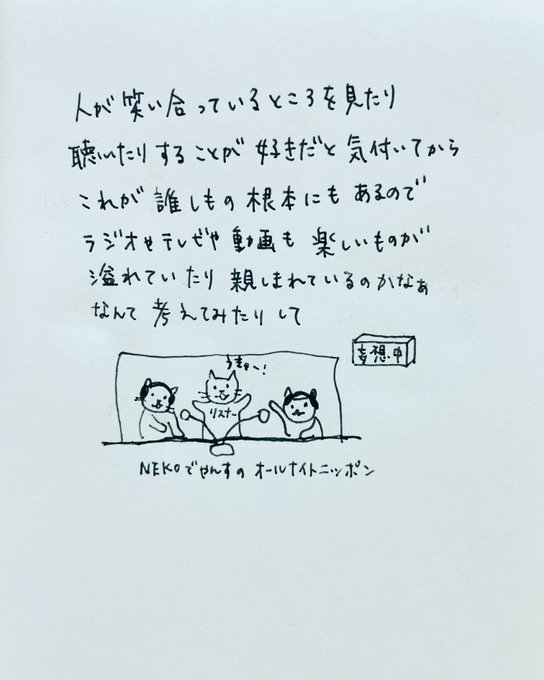 人が笑い合っているところを見たり
聴いたりすることが好きだと気付いてから
これが誰しもの根本にもあるので
ラジオやテレビや動画も楽しいものが
溢れていたり親しまれているのかなぁ
なんて考えてみたりして
妄想中
うきゃー!
リスナー
NEKOでやんすのオールナイトニッポン